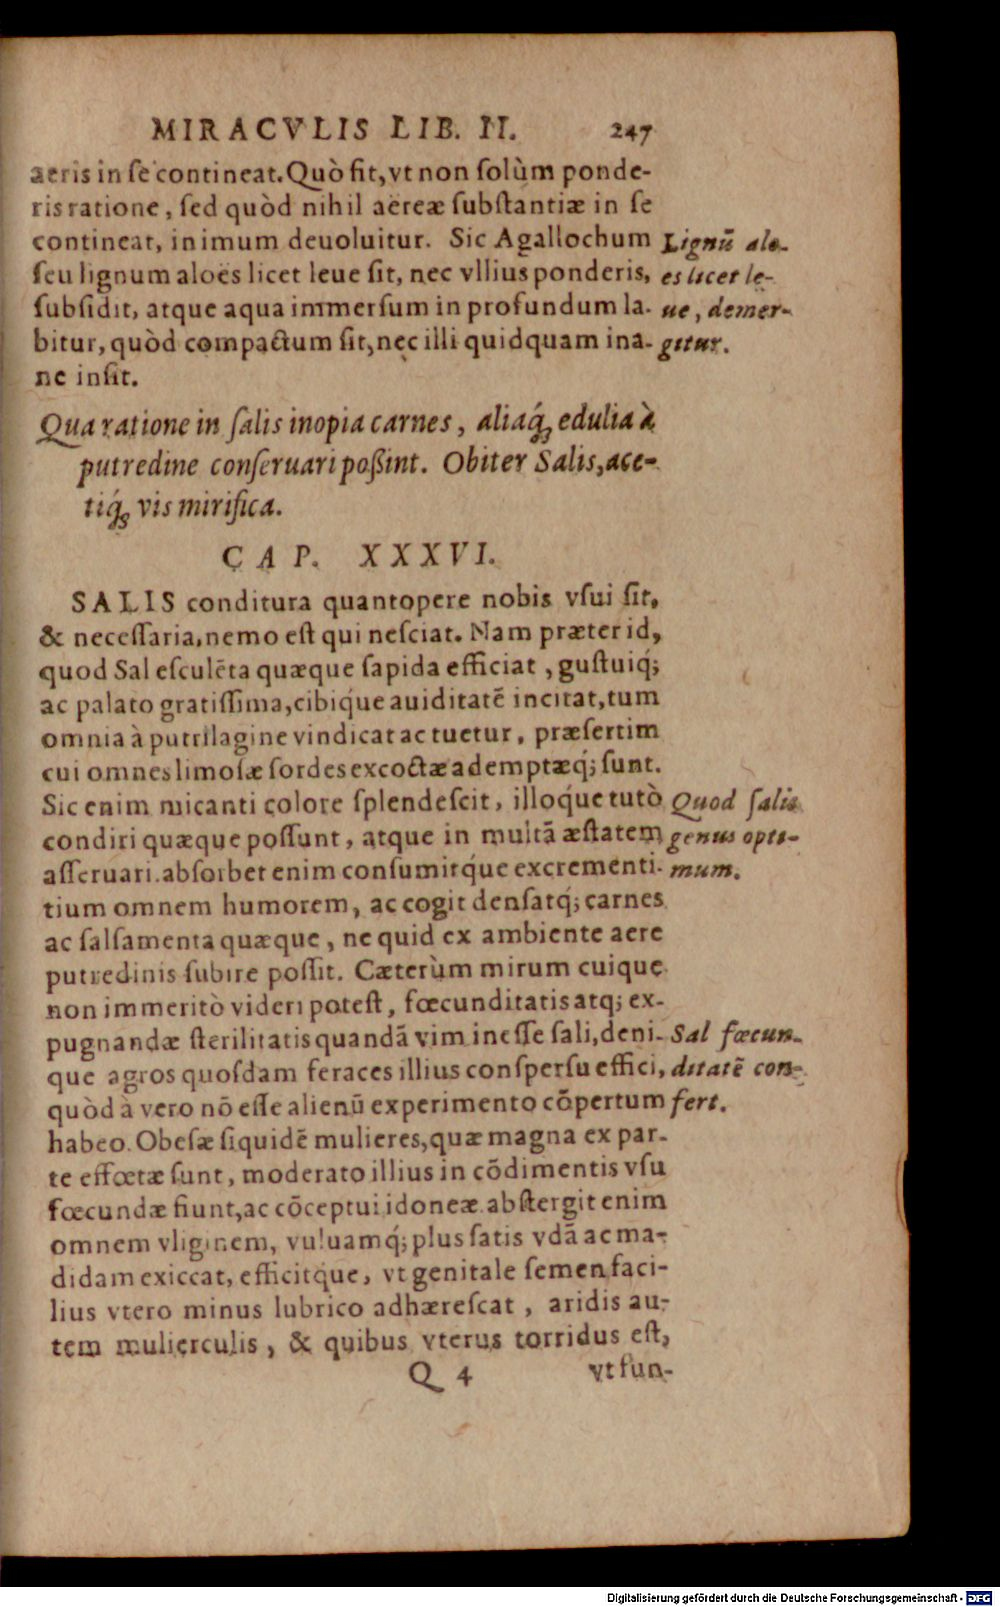 MIRACVLIS LIB. II. 247
aeris in se contineat. Quò fit, vt non ſolùm ponde-
ris ratione, ſed quòd nihil aëreæ ſubſtantiæ in ſe
contineat, in imum deuoluitur. Sic Agallochum
ſeu lignum aloës licet leue ſit, nec vllius ponderis,
ſubſidit, atque aqua immerſum in profundum la-
bitur, quòd compactum ſit, nec illi quidquam ina-
ne inſit.
Lignū alo-
es licet le-
ue, demer-
gitur.
Qua ratione in ſalis inopia carnes, aliaq́; edulia à
putredine conſeruari poßint. Obiter Salis, ace-
tiq́; vis mirifica.
CAP. XXXVI.
SALIS conditura quantopere nobis vſui ſit,
& neceſſaria, nemo eſt qui neſciat. Nam præter id,
quod Sal eſculēta quæque ſapida efficiat, guſtuiq́;
ac palato gratiſſima, cibiq́ue auiditatē incitat, tum
omnia à putrilagine vindicat ac tuetur, præſertim
cui omnes limoſæ ſordes excoctæ ademptæq́; ſunt.
Sic enim micanti colore ſplendeſcit, illoq́ue tutò
condiri quæque poſſunt, atque in multā æſtatem
aſſeruari. abſorbet enim conſumitq́ue excrementi-
tium omnem humorem, ac cogit denſatq́; carnes
ac ſalſamenta quæque, ne quid ex ambiente aere
putredinis ſubire poſſit. Cæterùm mirum cuique
non immeritò videri poteſt, fœcunditatis atq; ex-
pugnandæ ſterilitatis quandā vim ineſſe ſali, deni-
que agros quoſdam feraces illius conſperſu effici,
quòd à vero nō eſſe alienū experimento cōpertum
habeo. Obeſæ ſiquidē mulieres, quæ magna ex par-
te effœtæ ſunt, moderato illius in cōdimentis vſu
fœcundæ fiunt, ac cōceptui idoneæ. abſtergit enim
omnem vliginem, vuluamq́; plus ſatis vdā ac ma-
didam exiccat, efficitq́ue, vt genitale ſemen faci-
lius vtero minus lubrico adhæreſcat, aridis au-
tem mulierculis, & quibus vterus torridus eſt,
Quod ſalis
genus opti-
mum.
Sal fœcun-
ditatē con-
fert.
Q 4 vt ſun-
Digitalisierung gefördert durch die Deutsche Forschungsgemeinschaft - DFG